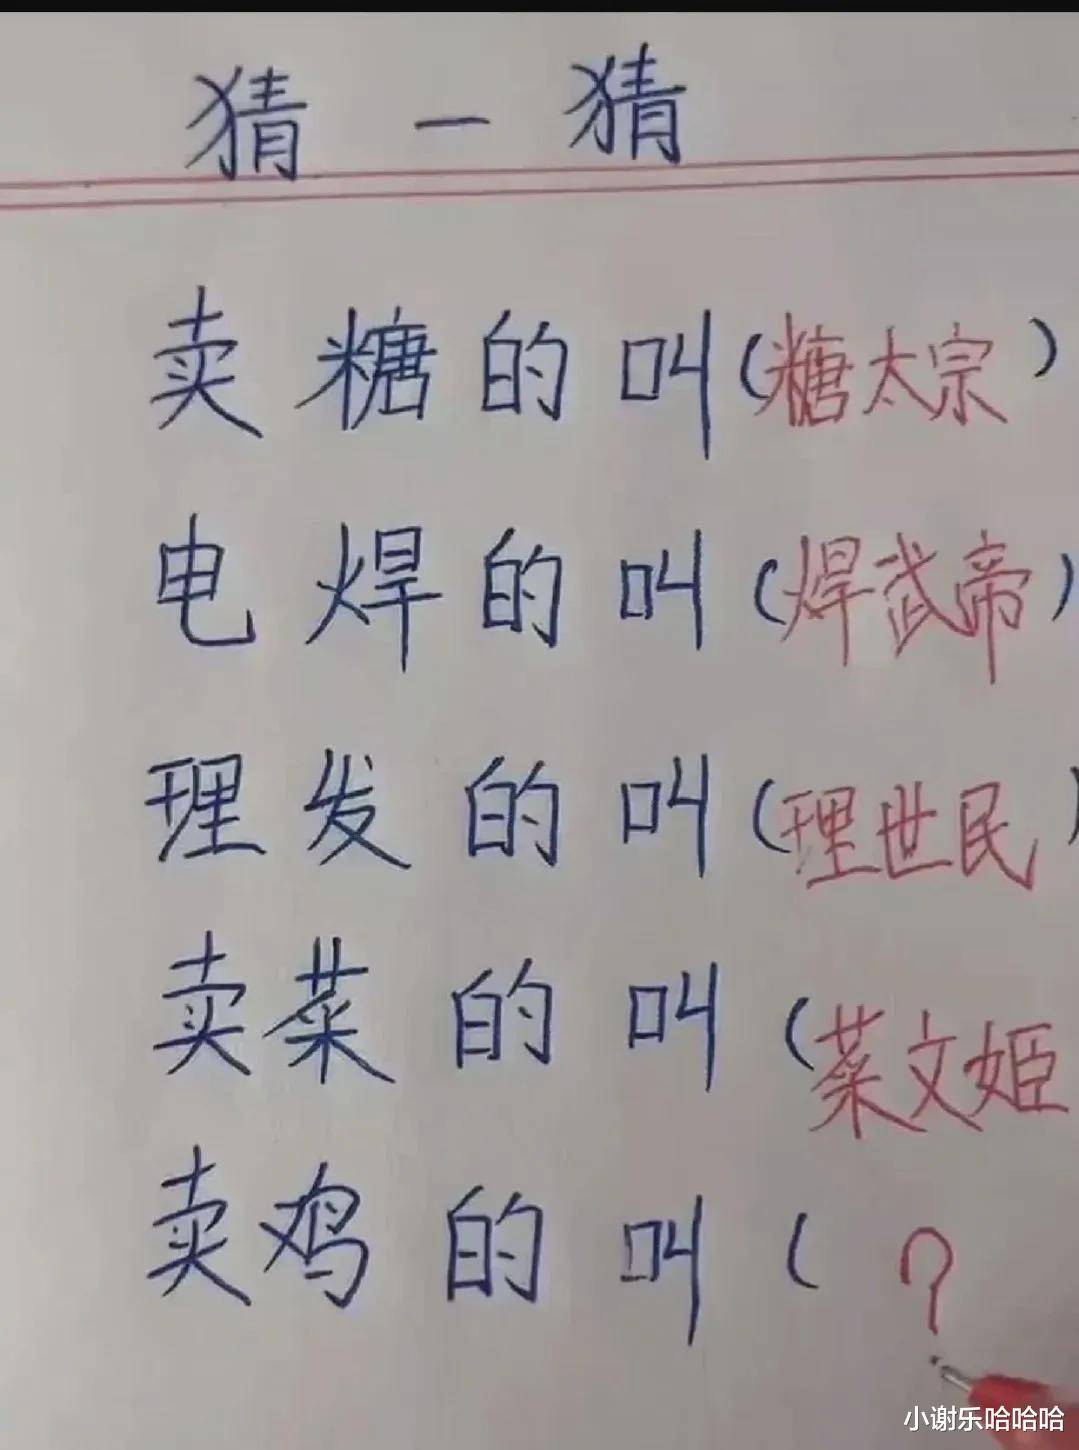 猜一猜
卖糖的叫(糖太宗)
电焊的叫(焊武帝)
理发的叫(理世民)
卖菜的叫(菜文姬
卖鸡的叫(?
小谢乐哈哈哈